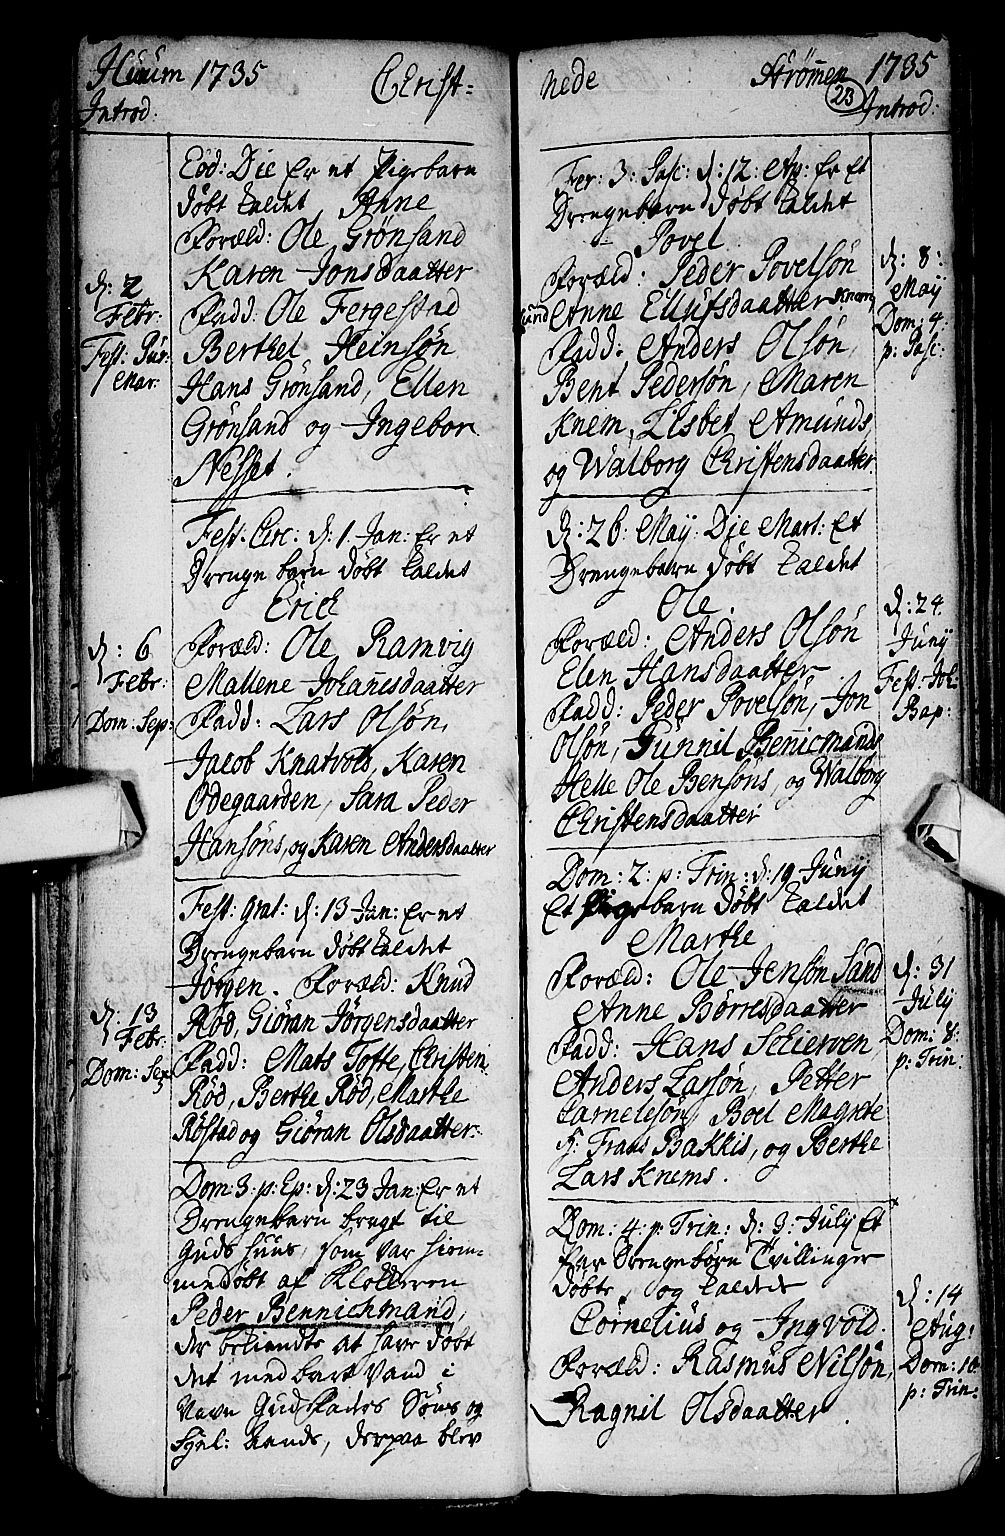 Huum 1735 Christ=
Introd:
Eod: Die er et Pigebarn
døbt kaldet Anne
Foræld: Ole Grönsand
Karen Jonsdaatter
Fadd: Ole Fergestad
Berthel Heinsön
Hans Grönsand, Ellen
Grönsand og Ingebor
Nesset.
d: 2
Febr:
Fest: Pur:
Mar:
Fest: Circ: d: 1. Jan: er et
Drenge barn döbt kaldet
Erick
Foræld: Ole Ramvig
Mallene Johannesdaatter
Fadd: Lars Olsön,
Jacob Knatvols, Karen
Odegaarden, Sara Peder
Hansöns, og Karen Andersdaatter
d: 6
Febr:
Dom: Sep:
Fest: Grat: d: 13 Jan: er et
Drengebarn döbt kaldet
Jörgen. Foræld: Knud
Röd, Giöran Jörgensdaatter
Fadd: Mats Tofte, Christen
Röd, Berthe Röd, Marthe
Röstad og Giöran Olsdaatter:
d: 13
Febr:
Dom: Sex
Dom: 3. p: Ep: d: 23 Jan: er et
Drengebarn bragt til
Guds huus, som var hiem-
medöbt af Klockeren
Peder Bennichmand,
der bekiendte at have döbt
det med bart Vand i
Navn Gud Faders Söns og
hell: Aands, derpaa blev
nede Strømen 1735
23
Introd:
Fer: 3. Pasc: d: 12. Ap: er et
Drengebarn döbt kaldet
Povel
Foræld: Peder Povelsön
Anne Ellufsdaatter Knem
sund
Fadd: Anders Olsön,
Bent Pedersön, Maren
Knem, Lisbet Amunds
og Walborg Christensdaatter
d: 8:
May
Dom: 4.
p: Pasc:
d: 26. May: Die Mart: et
Drengebarn döbt kaldet
Ole.
Foræld: Anders Olsön
Elen Hansdaatter
Fadd: Peder Povelsön, Jon
Olsön, Gunnil Benicmands
Helle Ole Bensöns, og Walborg
Christensdaatter
d: 24.
Juny
Fest: Joh:
Bap:
Dom: 2. p: Trin: d: 19 Juny
Et Pigebarn döbt kaldet
Marthe
Foræld: Ole Jensön Sand
Anne Börresdaatter
Fadd: Hans Schierven,
Anders Larsön, Petter
Carnelesön, Boel Magrete
H: Frans Bakkis, og Berthe
Lars Knems.
d: 31
July
Dom: 8:
p: Trin.
Dom: 4. p: Trin: d: 3. July Et
Par Drengebörn Tvillinger
döbte, og kaldet
Cornelius og Ingvold.
Foræld: Rasmus Nilsön,
Ragnil Olsdaatter.
d: 14
Aug:
Dom: 10
p: Trin: